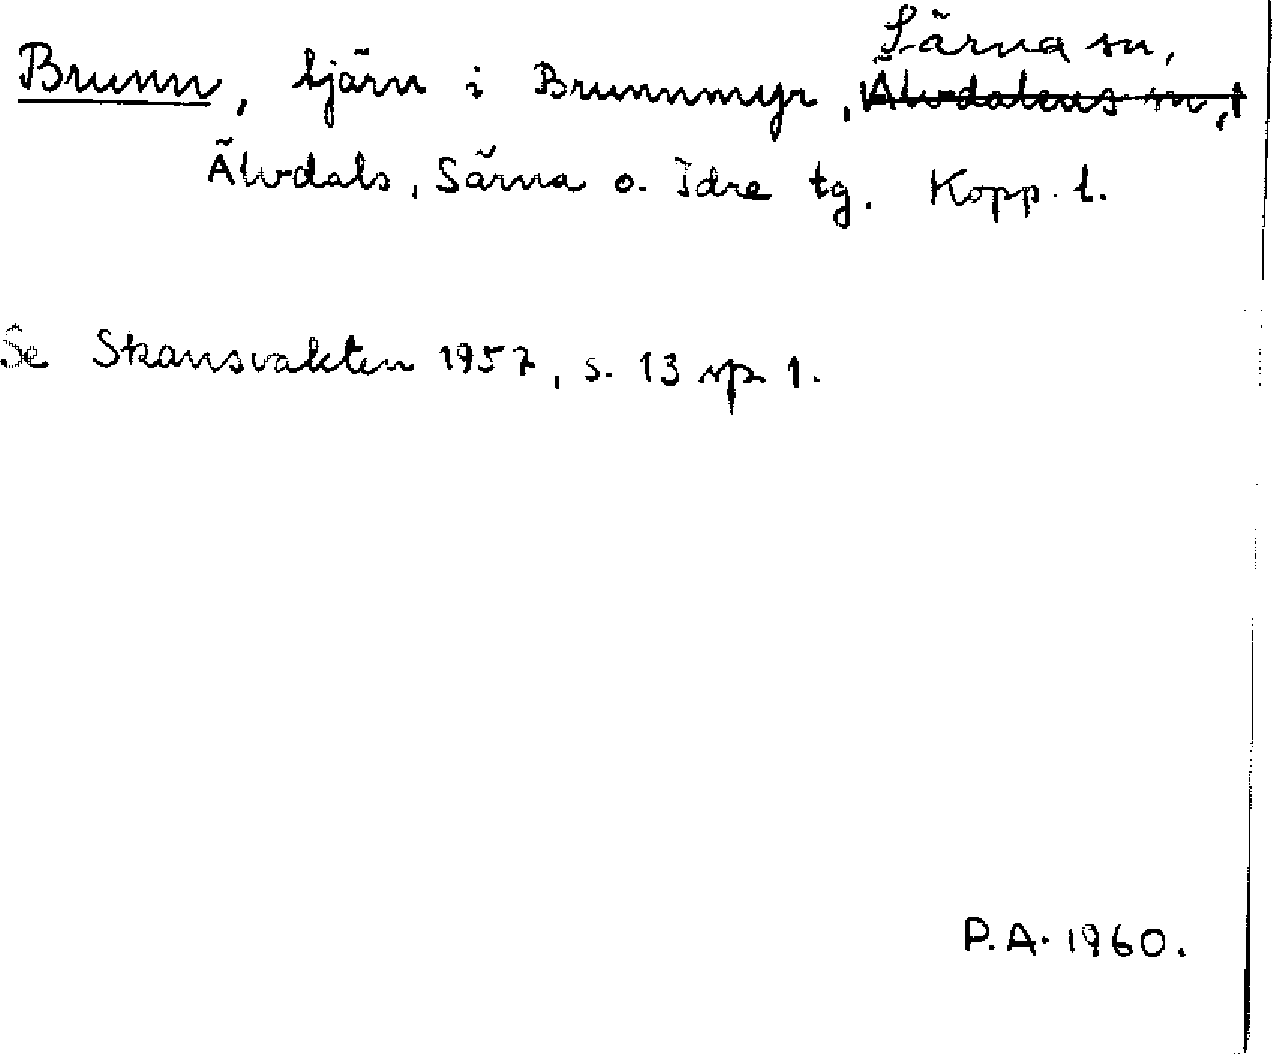 Särna sn,
Brunn, tjärn i Brunnmyr, Älvdalens sn,
Älvdals, Särna o. Idre tg. Kopp. l.
Se Skansvakten 1957, s. 13 sp 1.
P.A. 1960.